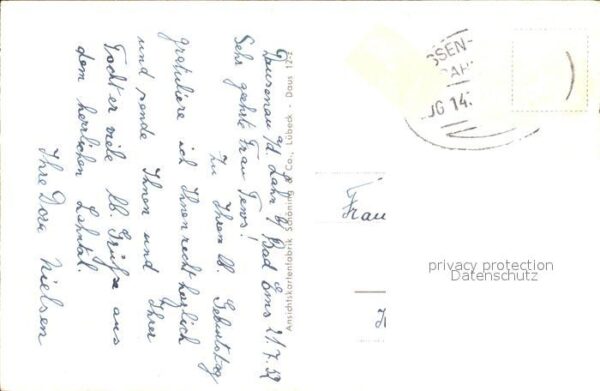 Dausenau a/d Lahn b/ Bad Ems 21.7.52
Sehr geehrte Frau Tews!
Zu Ihrem lb. Geburtstag
gratuliere ich Ihnen recht herzlich
und sende Ihnen und Ihrer
Tochter viele lb. Grüße aus
dem herrlichen Lahntal.
Ihre Dora Nielsen
Ansichtskartenfabrik Schöning & Co., Lübeck - Daus 12
SSEN-
UG 14
Frau
privacy protection
Datenschutz